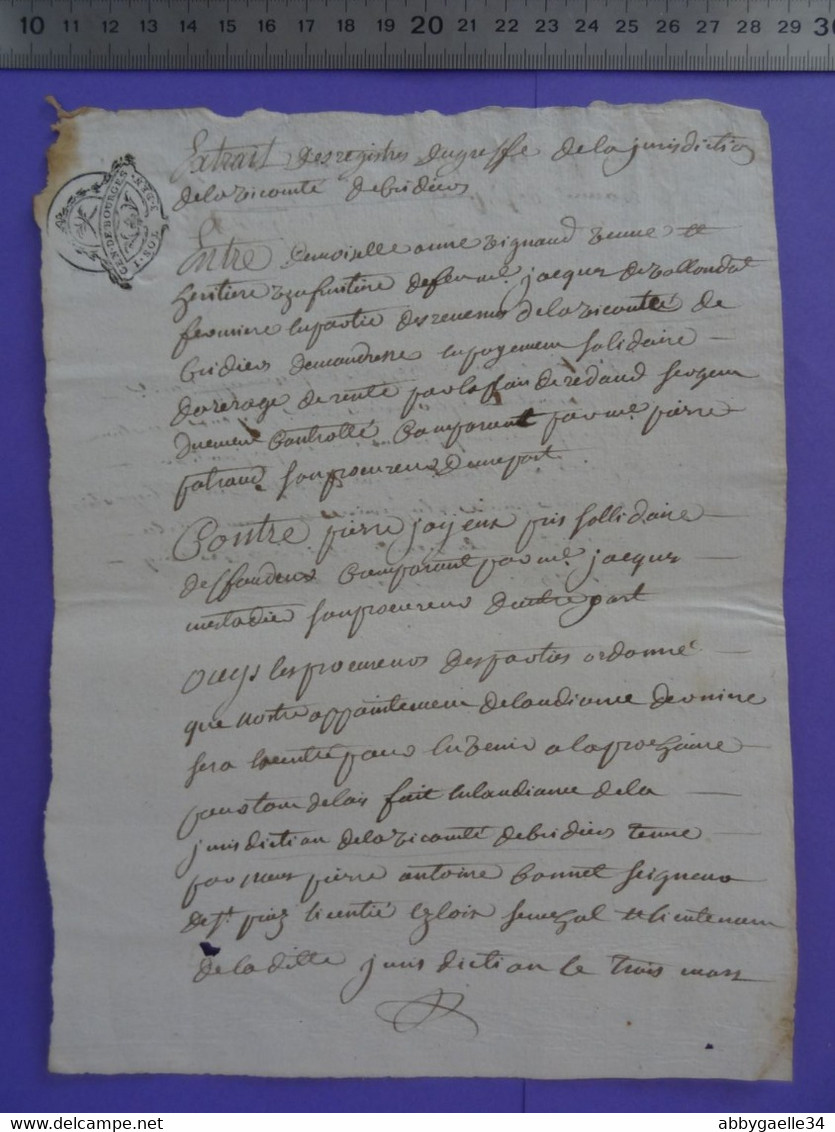 10 11 12 13 14 15 16 17 18 19 20 21 22 23 24 25 26 27 28 29 30
GEN·DE·BOURGES
Extrait des registres du greffe de la jurisdiction
de la vicomté de bridiers
Entre demoiselle anne vignaud veuve et
heritiere uzufruitiere de feu me. jacques de
fermiere en partie des revenus de la vicomté de
bridiers demandresse en payement solidaire
darerage de rente par exploit de redaud sergent
duement controllé comparant par me. pierre
patraud son procureur dune part
Contre pierre joyeux pris sollidaire
deffandeur comparant par me. jacques
mestadier son procureur dautre part
Ouys les procureurs des parties ordonné
que nostre appointement de laudiance derniere
sera pour en venir a la prochaine
pour tout delais fait en laudiance de la
jurisdiction de la vicomté de bridiers tenue
par nous pierre antoine bonnet seigneur
de st. licentié ez loix senechal et lieutenant
de la ditte jurisdiction le trois mars
delcampe.net
abbygaelle34